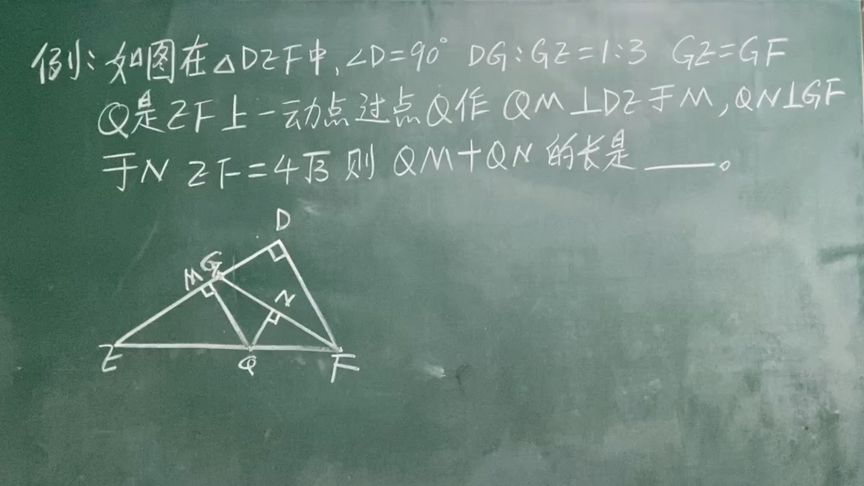 例:如图在△DZF中,∠D=90° DG:GZ=1:3 GZ=GF
Q是ZF上一动点过点Q作 QM⊥DZ于M,QN⊥GF
于N ZF=4√3 则 QM+QN 的长是____。
D
M G
N
Z Q F